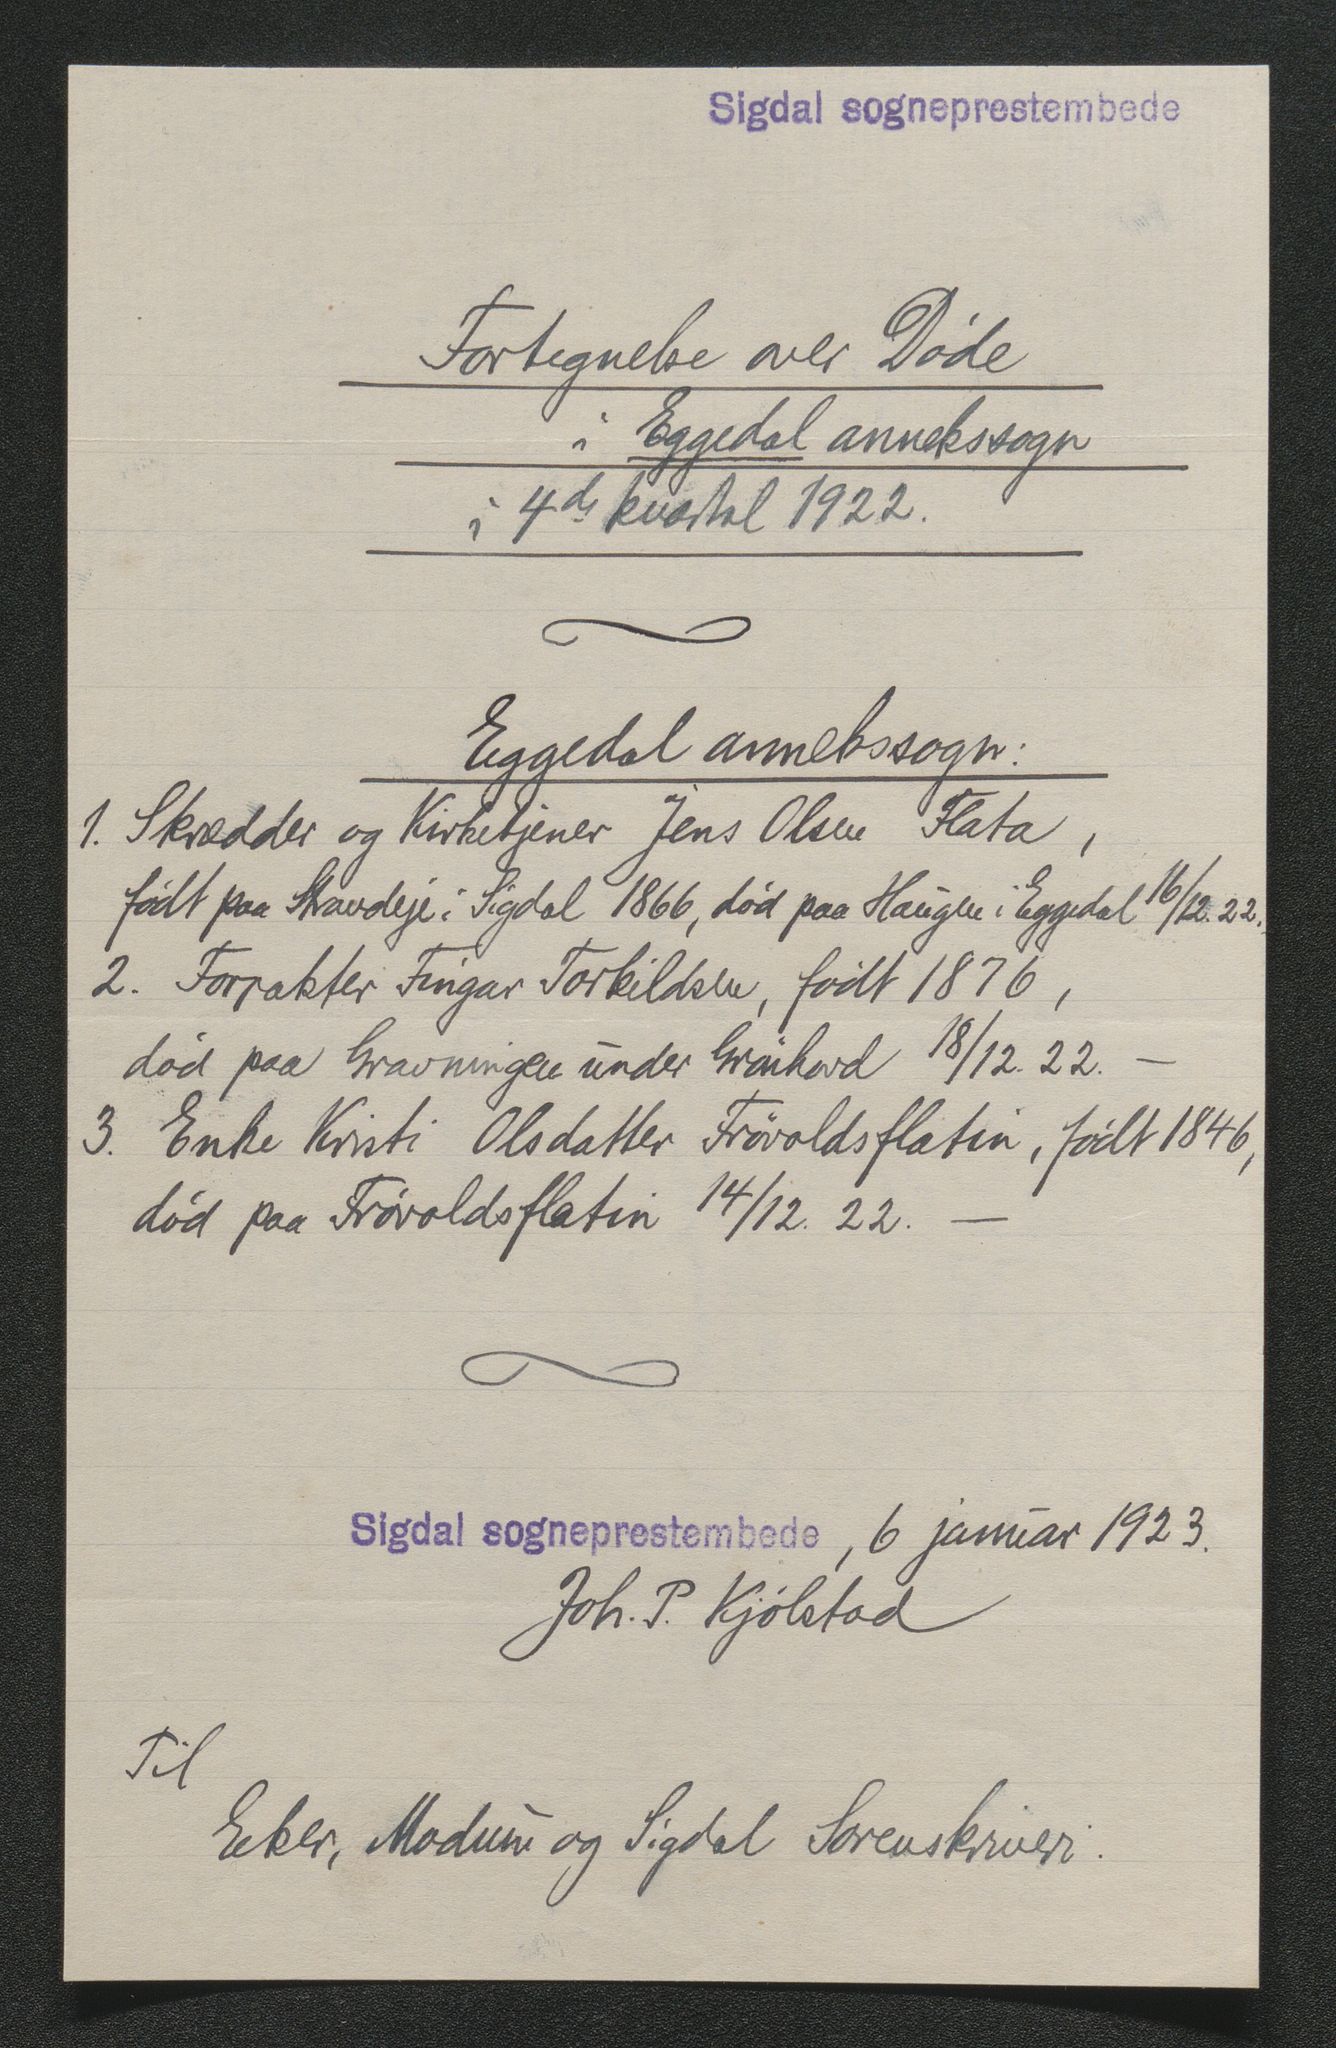 Sigdal sogneprestembede
Fortegnelse over Døde
i Eggedal annekssogn
i 4de kvartal 1922.
Eggedal annekssogn:
1. Skrædder og Kirketjener Jens Olsen Flata,
født paa i Sigdal 1866, død paa Haugen i Eggedal 16/12.22.
2. Forpakter Fingar Torkildsen, født 1876,
død paa Gravningen under 18/12.22. —
3. Enke Kristi Olsdatter Frøvoldsflatin, født 1846,
død paa Frøvoldsflatin 14/12.22. —
Sigdal sogneprestembede, 6 januar 1923.
Joh. P. Kjølstad
Til
Eker, Modum og Sigdal Sorenskriveri.